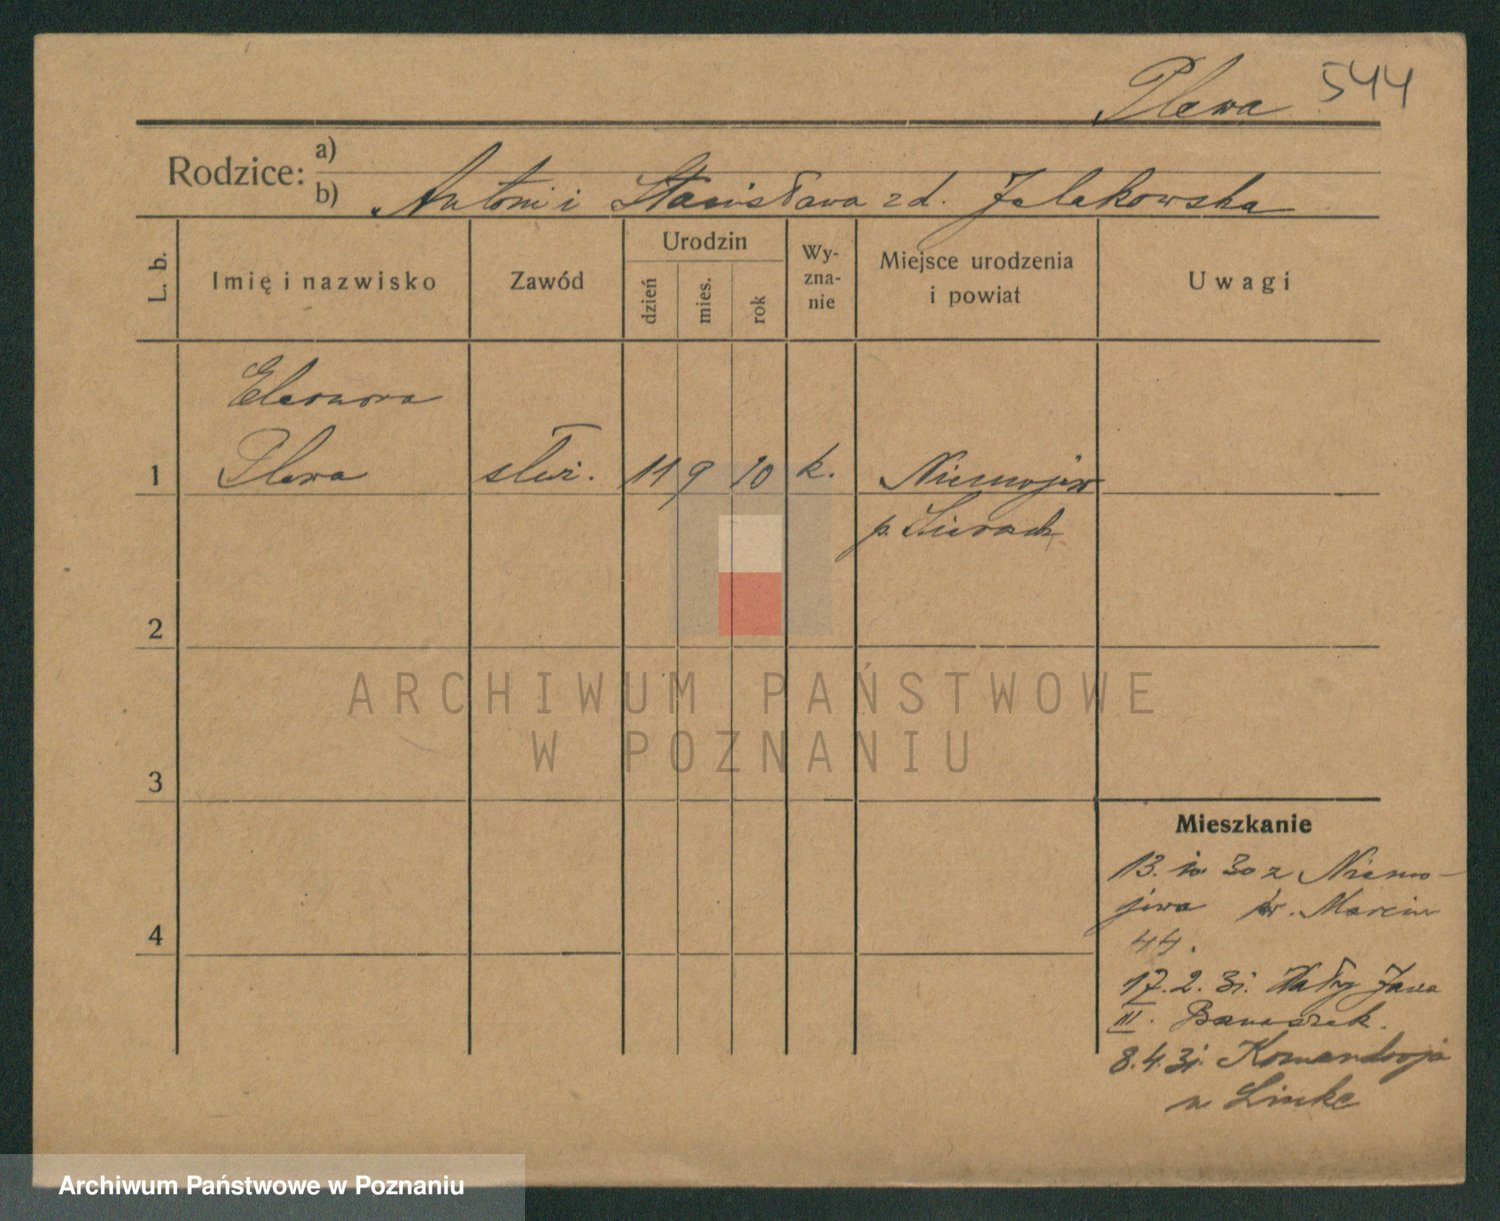 Plewa 544
Rodzice: a)
b) Antoni i Stanisława zd. Jalakowska
L. b.
Imię i nazwisko
Zawód
Urodzin
dzień
mies.
rok
Wy-
zna-
nie
Miejsce urodzenia
i powiat
Uwagi
Eleonora
1 Plewa służ. 11 9 10 k. Niemojew
p. Sieradz
2
3
4
ARCHIWUM PAŃSTWOWE
W POZNANIU
Mieszkanie
13. 10. 30 z Niemo-
jewa św. Marcin
44.
17. 2. 31. Wały Jana
III. Banaszak.
8. 4. 31. Komandorja
u Linke
Archiwum Państwowe w Poznaniu